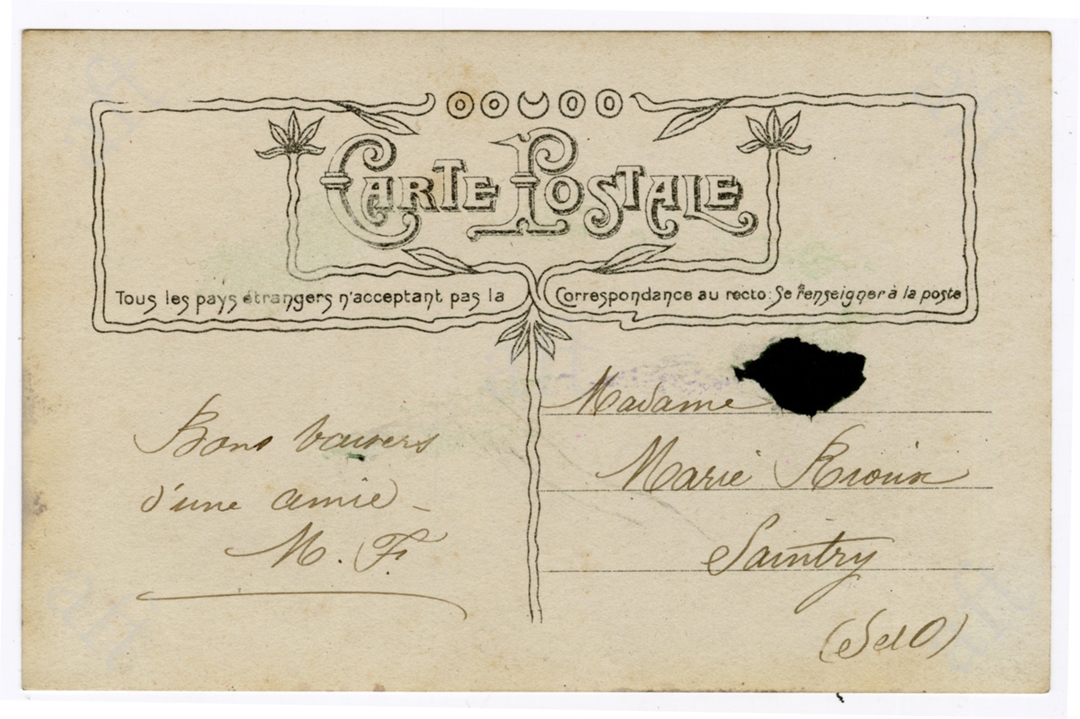 CARTE POSTALE
Tous les pays étrangers n'acceptant pas la Correspondance au recto: Se renseigner à la poste
Madame
Bons baisers
Marie
d'une amie
M. F.
Saintry
(S et O)